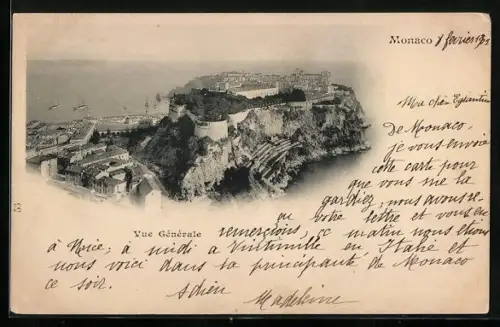 Monaco 8 février 190
Ma chère Eglantine
De Monaco.
je vous envoie
cette carte pour
que vous me la
gardiez, nous avons re-
çu votre lettre et vous en
remercions, ce matin nous étions
Vue Générale
à Nice, à midi à Vintimille en Italie et
nous voici dans la principauté de Monaco
ce soir. adieu Madeleine